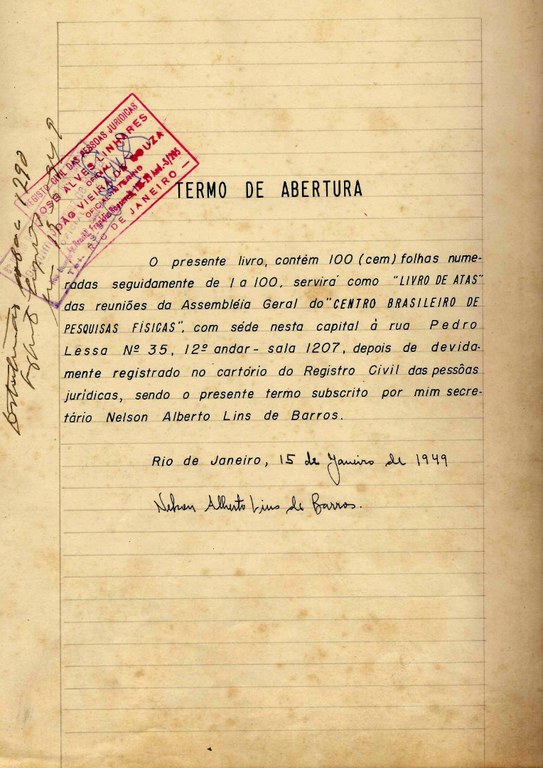 REGISTO CIVIL DAS PESSOAS JURIDICAS
JOSÉ ALVES LINHARES
OFICIAL
JOÃO VIEIRA DE SOUZA
RIO DE JANEIRO
TERMO DE ABERTURA
O presente livro, contém 100 (cem) folhas nume-
radas seguidamente de 1 a 100, servirá como "LIVRO DE ATAS"
das reuniões da Assembléia Geral do "CENTRO BRASILEIRO DE
PESQUISAS FÍSICAS", com séde nesta capital à rua Pedro
Lessa Nº 35, 12º andar - sala 1207, depois de devida-
mente registrado no cartório do Registro Civil das pessôas
jurídicas, sendo o presente termo subscrito por mim secre-
tário Nelson Alberto Lins de Barros.
Rio de Janeiro, 15 de Janeiro de 1949
Nelson Alberto Lins de Barros.